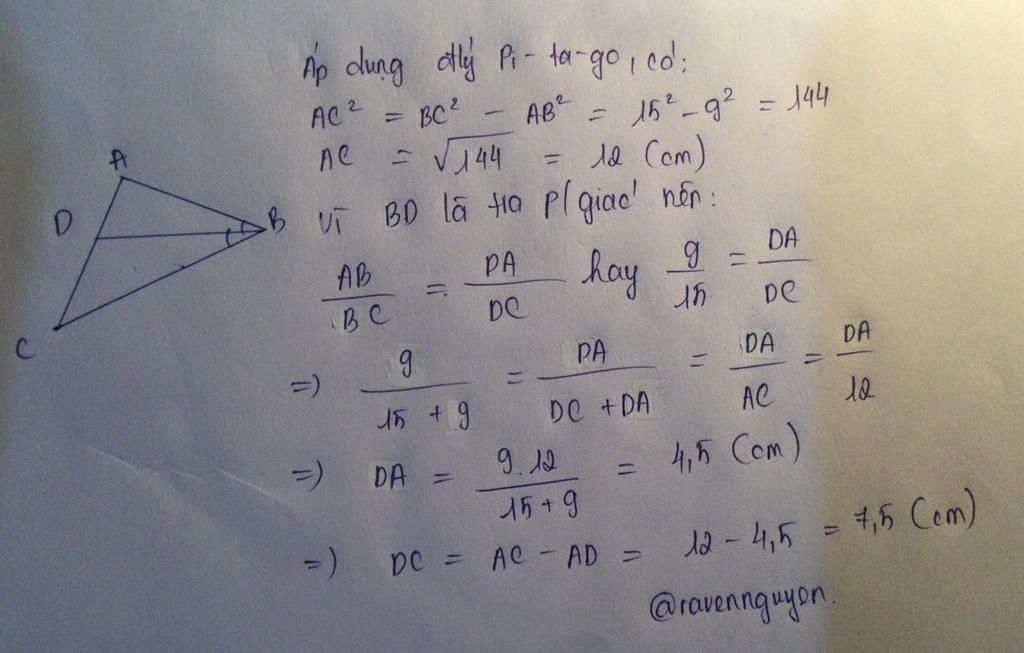 Áp dụng đlý Pi-ta-go, có:
AC² = BC² - AB² = 15² - 9² = 144
AC = √144 = 12 (cm)
Vì BD là tia p/giác nên:
AB/BC = DA/DC hay 9/15 = DA/DC
=) 9/(15 + 9) = DA/(DC + DA) = DA/AC = DA/12
=) DA = (9.12)/(15+9) = 4,5 (cm)
=) DC = AC - AD = 12 - 4,5 = 7,5 (cm)
@ravennguyen.
A
D
B
C